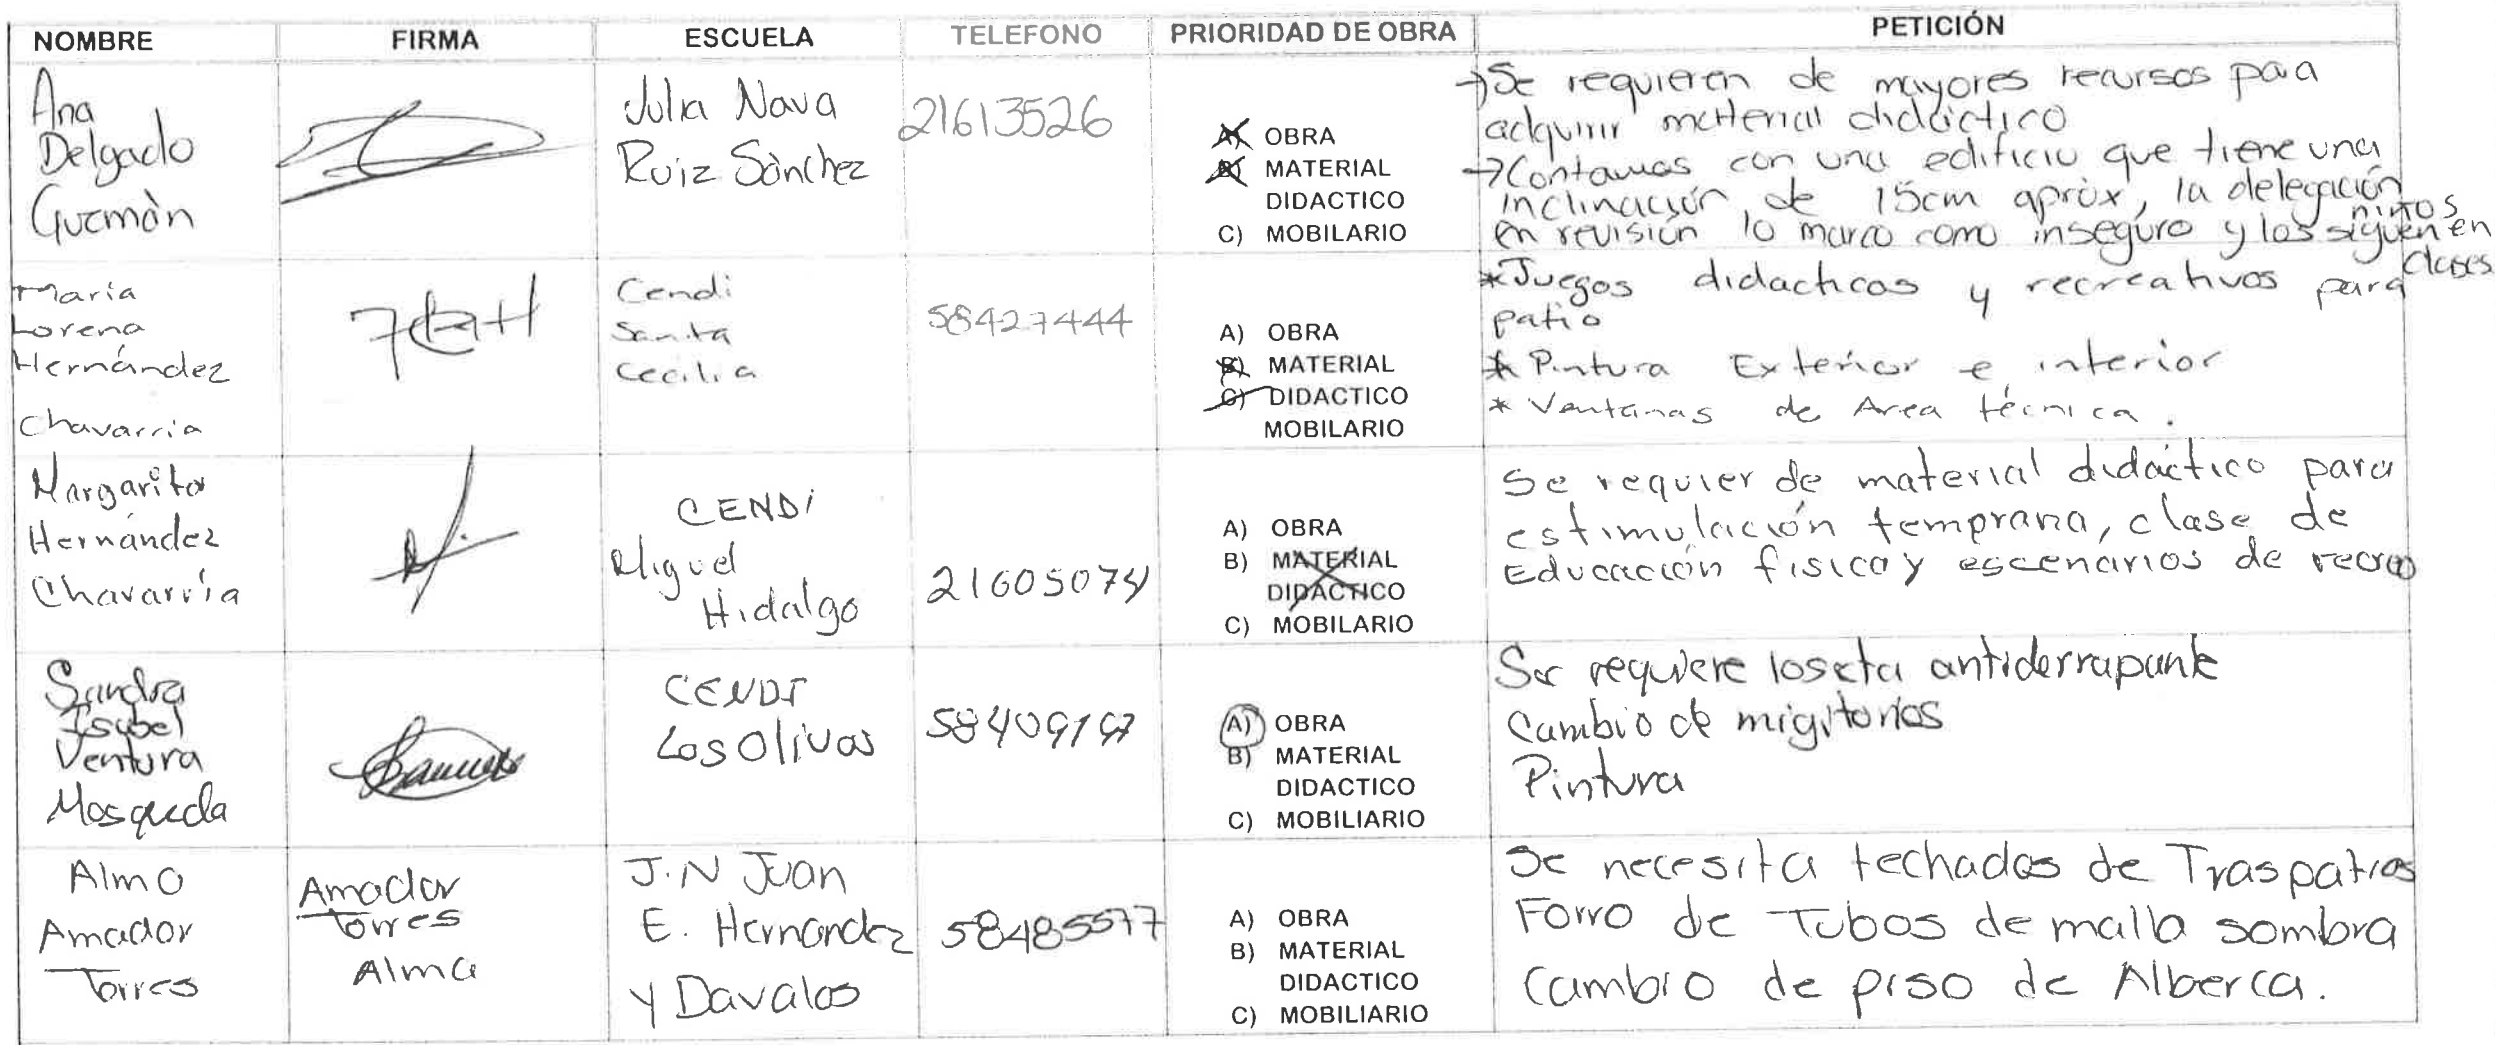 NOMBRE FIRMA ESCUELA TELEFONO PRIORIDAD DE OBRA PETICIÓN
Ana
Delgado
Guzmàn
Julia Nava
Ruiz Sànchez
21613526
A) OBRA
B) MATERIAL
DIDACTICO
C) MOBILARIO
→Se requieren de mayores recursos para
adquirir material didáctico
→Contamos con una edificio que tiene una
inclinación de 15cm apròx, la delegación
en revisión lo marco como inseguro y los niños siguen en
clases
María
Lorena
Hernández
Chavarría
Cendi
Santa
Cecilia
58427444
A) OBRA
B) MATERIAL
C) DIDACTICO
MOBILARIO
*Juegos didacticos y recreativos para
patio
* Pintura Exterior e interior
* Ventanas de Area técnica.
Margarita
Hernández
Chavarría
CENDI
Miguel
Hidalgo
21605074
A) OBRA
B) MATERIAL
DIDACTICO
C) MOBILARIO
Se requier de material didáctico para
estimulación temprana, clase de
Educación fisica y escenarios de recreo
Sandra
Isabel
Ventura
Mosqueda
CENDI
Los Olivos
58409197
A) OBRA
B) MATERIAL
DIDACTICO
C) MOBILIARIO
Se requiere loseta antiderrapante
Cambio de migitorios
Pintura
Alma
Amador
Torres
Amador
Torres
Alma
J.N Juan
E. Hernandez
y Davalos
58485577
A) OBRA
B) MATERIAL
DIDACTICO
C) MOBILIARIO
Se necesita techados de Traspatios
Forro de Tubos de malla sombra
Cambio de piso de Alberca.